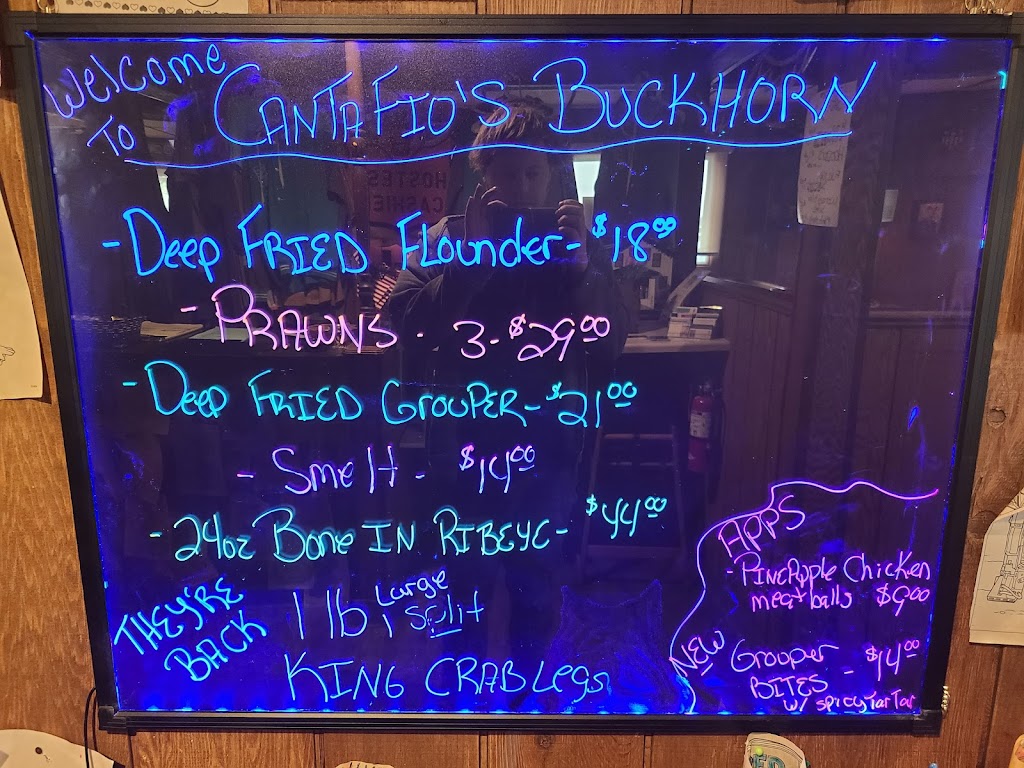 Welcome
To
CANTAFIO'S BUCKHORN
- Deep FRIED Flounder - $18.00
- PRAWNS - 3 - $29.00
- Deep FRIED GROUPER - $21.00
- Smelt - $14.00
- 24oz Bone IN RIBEYE - $44.00
THEY'RE
BACK
1 lb, Large
Split
KING CRAB Legs
APPS
- PINEApple Chicken
meatballs $9.00
NEW
Grouper
BITES - $14.00
w/ spicy Tar Tar
HOSTES
CASHIE